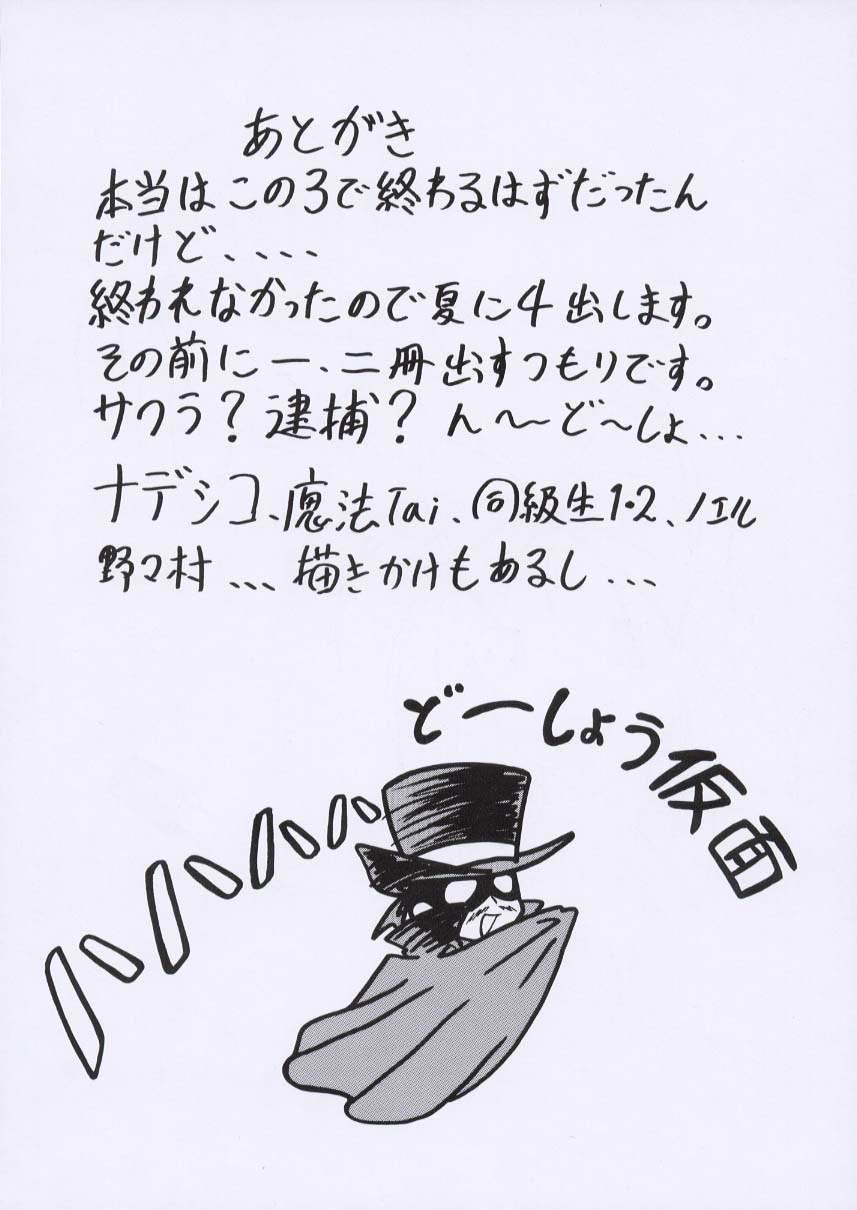 あとがき
本当はこの3で終わるはずだったん
だけど、、、、
終われなかったので夏に4出します。
その前に一、二冊出すつもりです。
サクラ？逮捕？ん〜ど〜しょ…
ナデシコ、魔法Tai、同級生1・2、ノエル
野々村、、、描きかけもあるし…
どーしょう仮面
ハハハハ